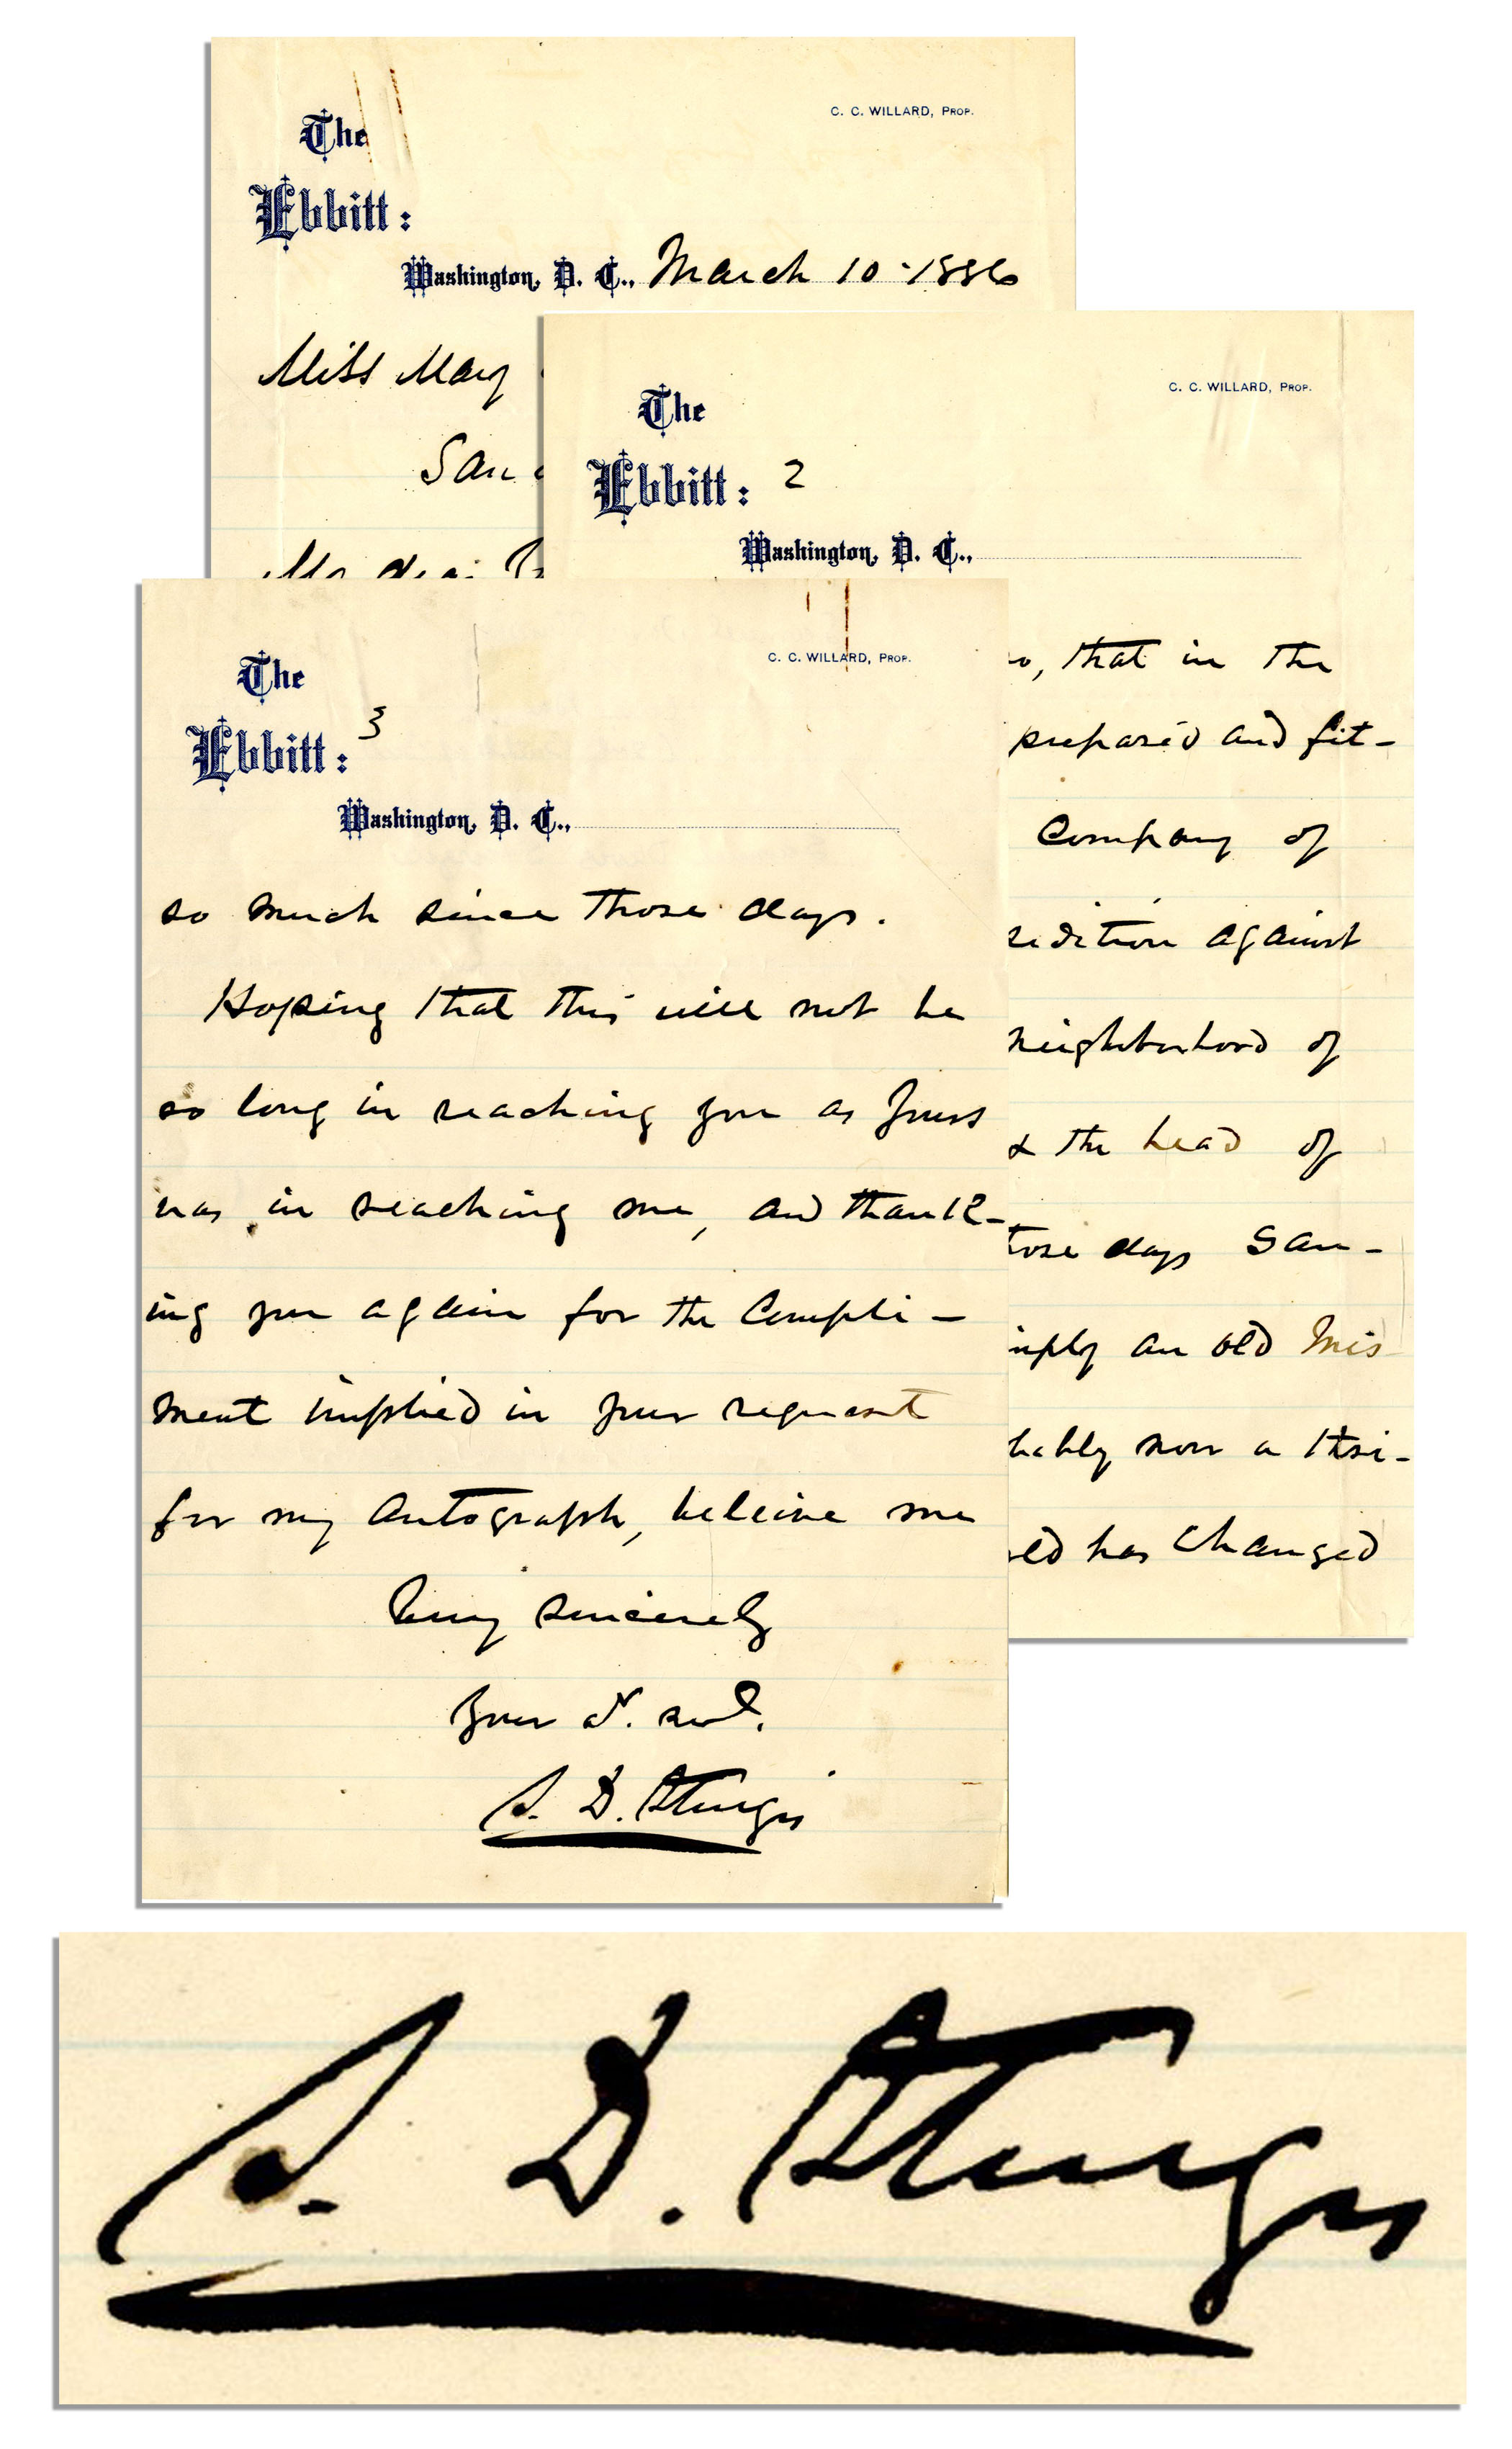 The
C. C. WILLARD, PROP.
Ebbitt:
Washington, D. C., March 10-1886
Miss Mary
San
My dear
The
C. C. WILLARD, PROP.
Ebbitt: 2
Washington, D. C.,
that in the
prepared and fit-
Company of
against
neighborhood of
the head of
days San-
an old Mis
now a thri-
has changed
The
C. C. WILLARD, PROP.
Ebbitt: 3
Washington, D. C.,
so much since those days.
Hoping that this will not be
so long in reaching you as yours
was in reaching me, and thank-
ing you again for the Compli-
ment implied in your request
for my Autograph, beleive me
Very sincerely
Your
S. D. Sturgis
S. D. Sturgis